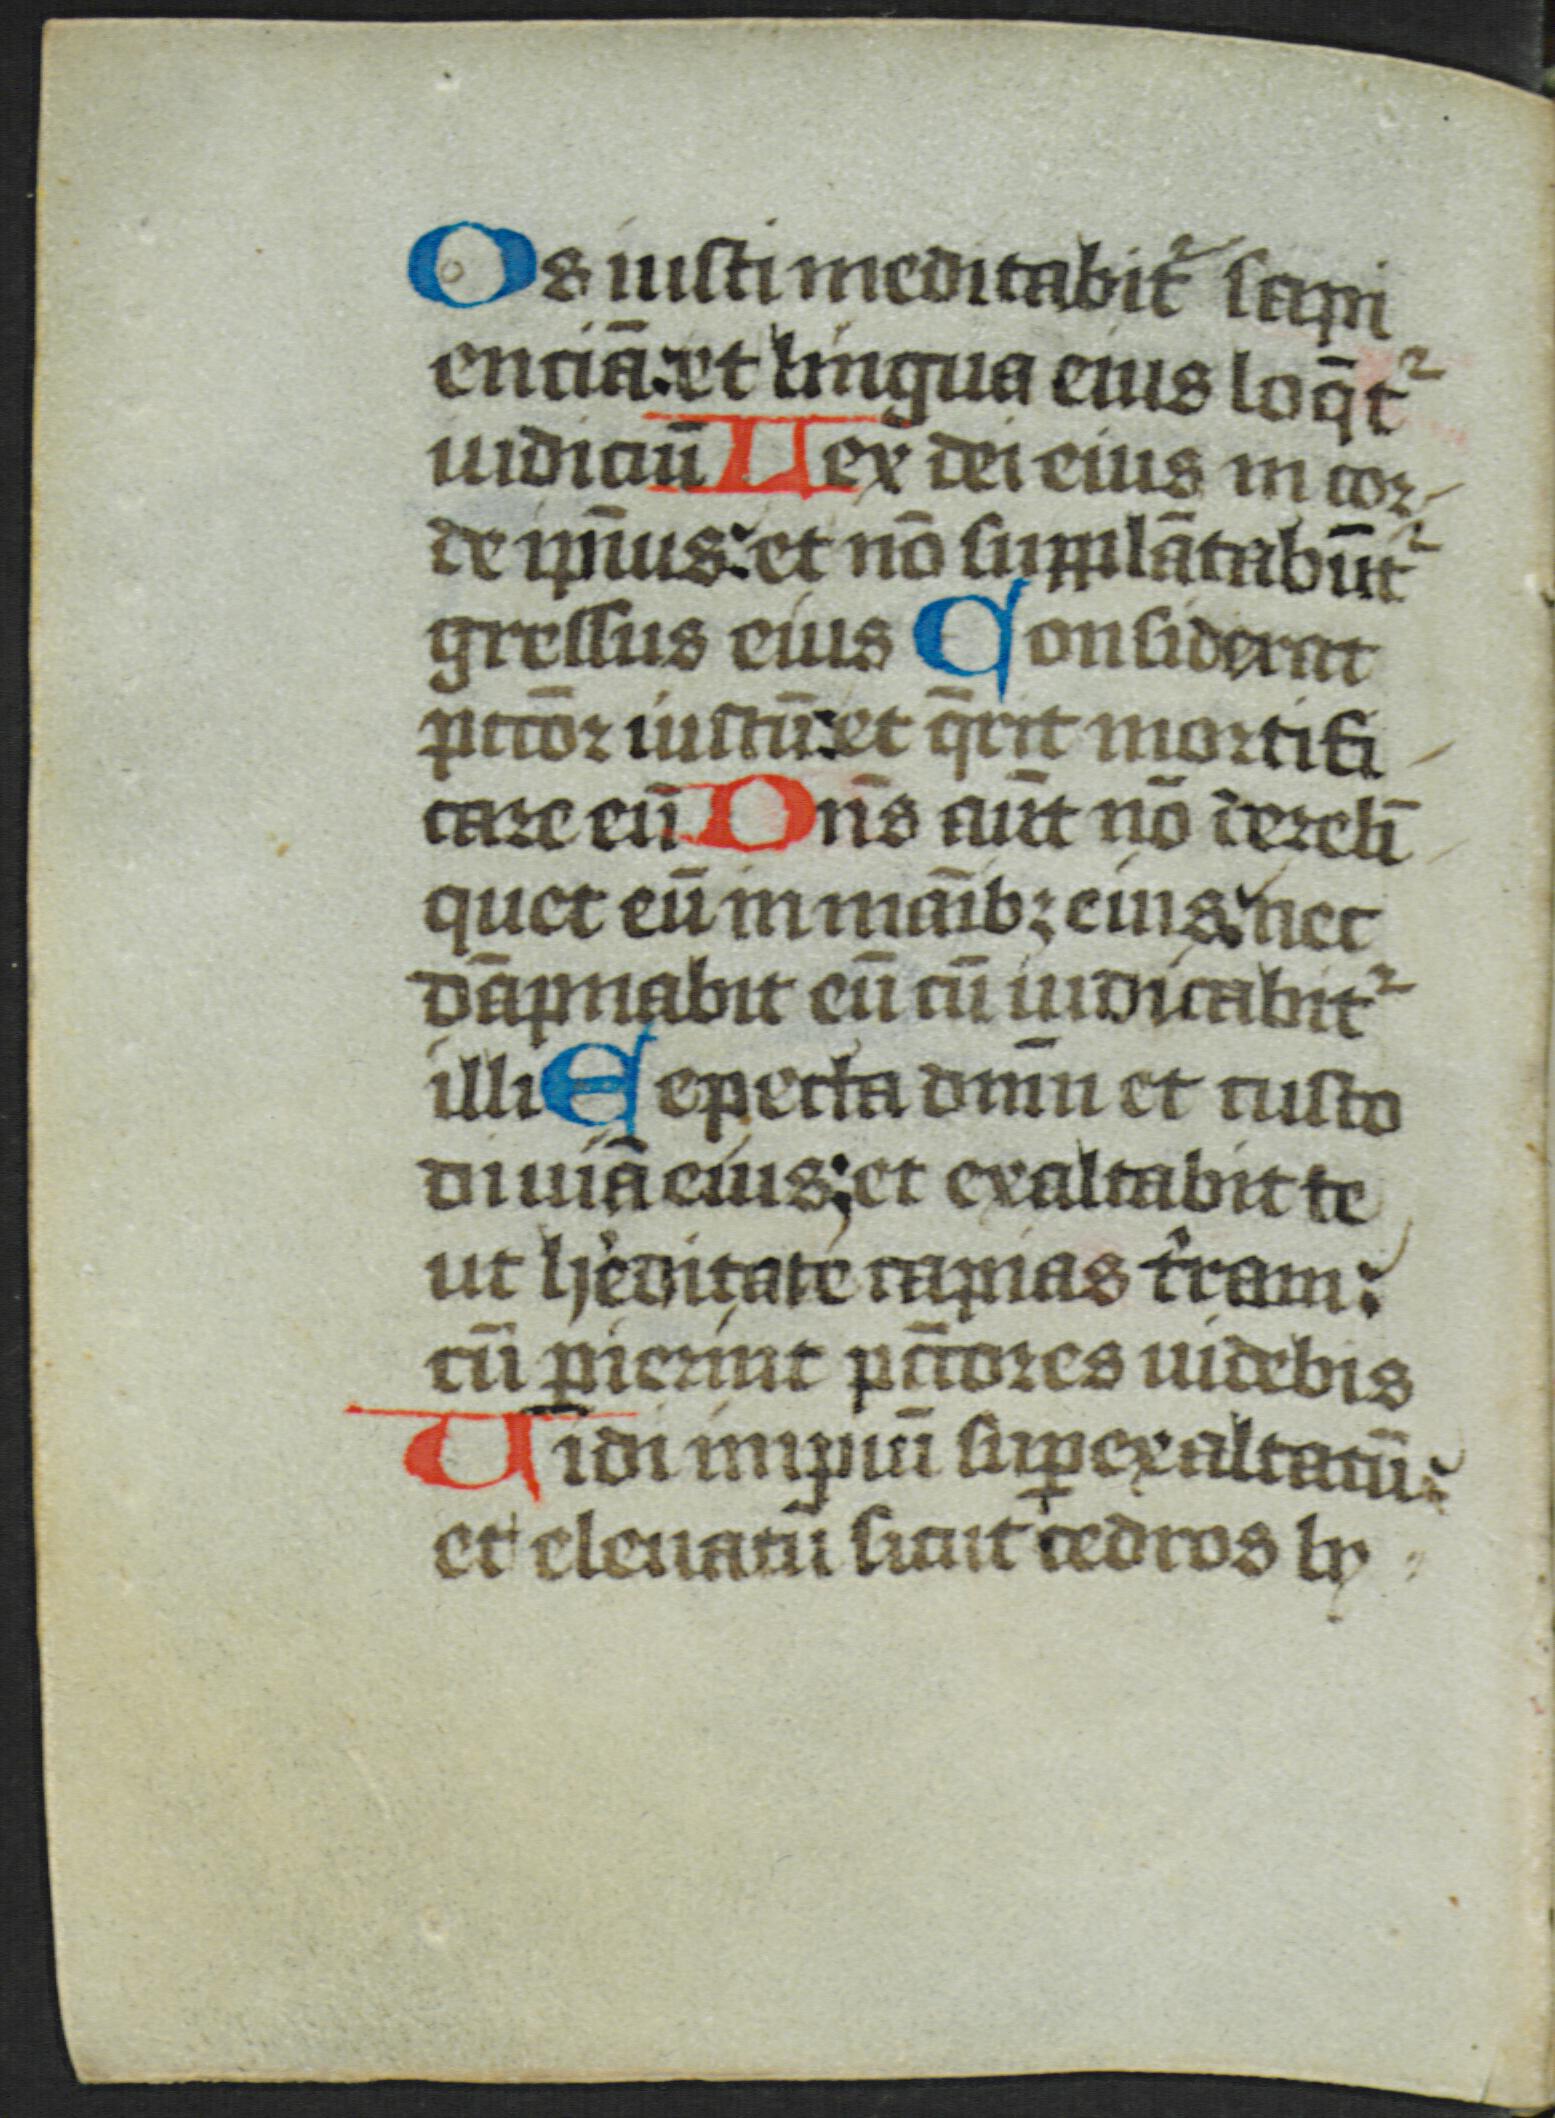 Os iusti meditabit᷑ sapi
enciā: et lingua eius loq̄t᷑
iudiciū Lex dei eius in cor-
de ip̄ius: et nō supplātabūt᷑
gressus eius Considerat
pccōr iustū: et q̄rit mortifi
care eū Dn̄s aūt nō derelī
quet eū in māibꝫ eius: nec
dāpnabit eū cū iudicabit᷑
illi Eepecta dnīn et custo
di uiā eius: et exaltabit te
ut h̓editatē capias t̓ram:
cū ꝑierint pc̄cores uidebis
Uidi impiū suꝑexaltatū:
et eleuatū sicut cedros ly